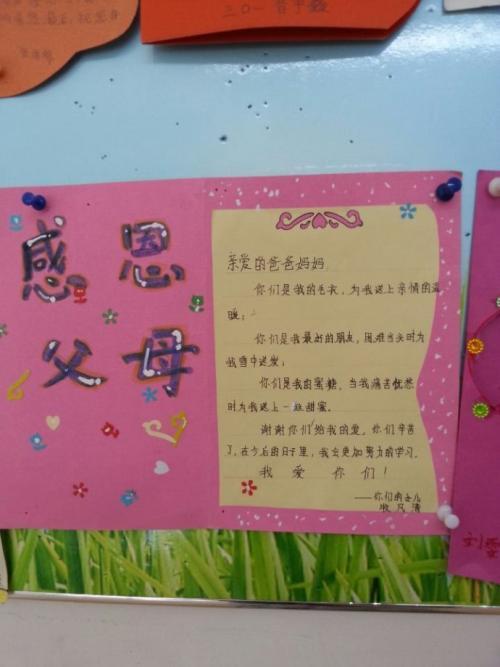 三〇一
感恩
父母
亲爱的爸爸妈妈
你们是我的毛衣,为我送上亲情的温
暖;
你们是我最好的朋友,困难当头时为
我雪中送炭;
你们是我的蜜糖,当我痛苦忧愁
时为我送上一丝甜蜜。
谢谢你们给我的爱,你们辛苦
了,在今后的日子里,我会更加努力的学习。
我爱你们!
——你们的女儿